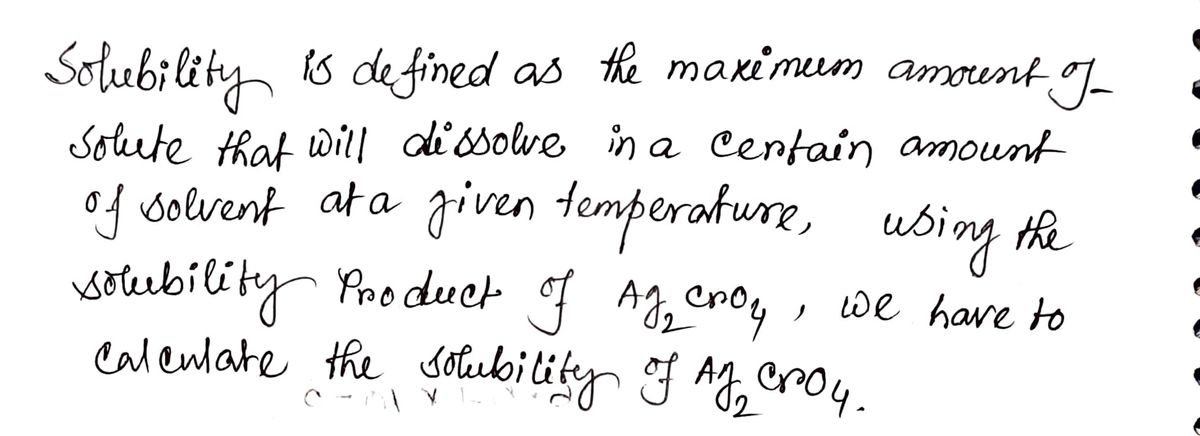 Solubility is defined as the maximum amount of
solute that will dissolve in a certain amount
of solvent at a given temperature, using the
solubility Product of Ag₂CrO₄, we have to
calculate the solubility of Ag₂CrO₄.